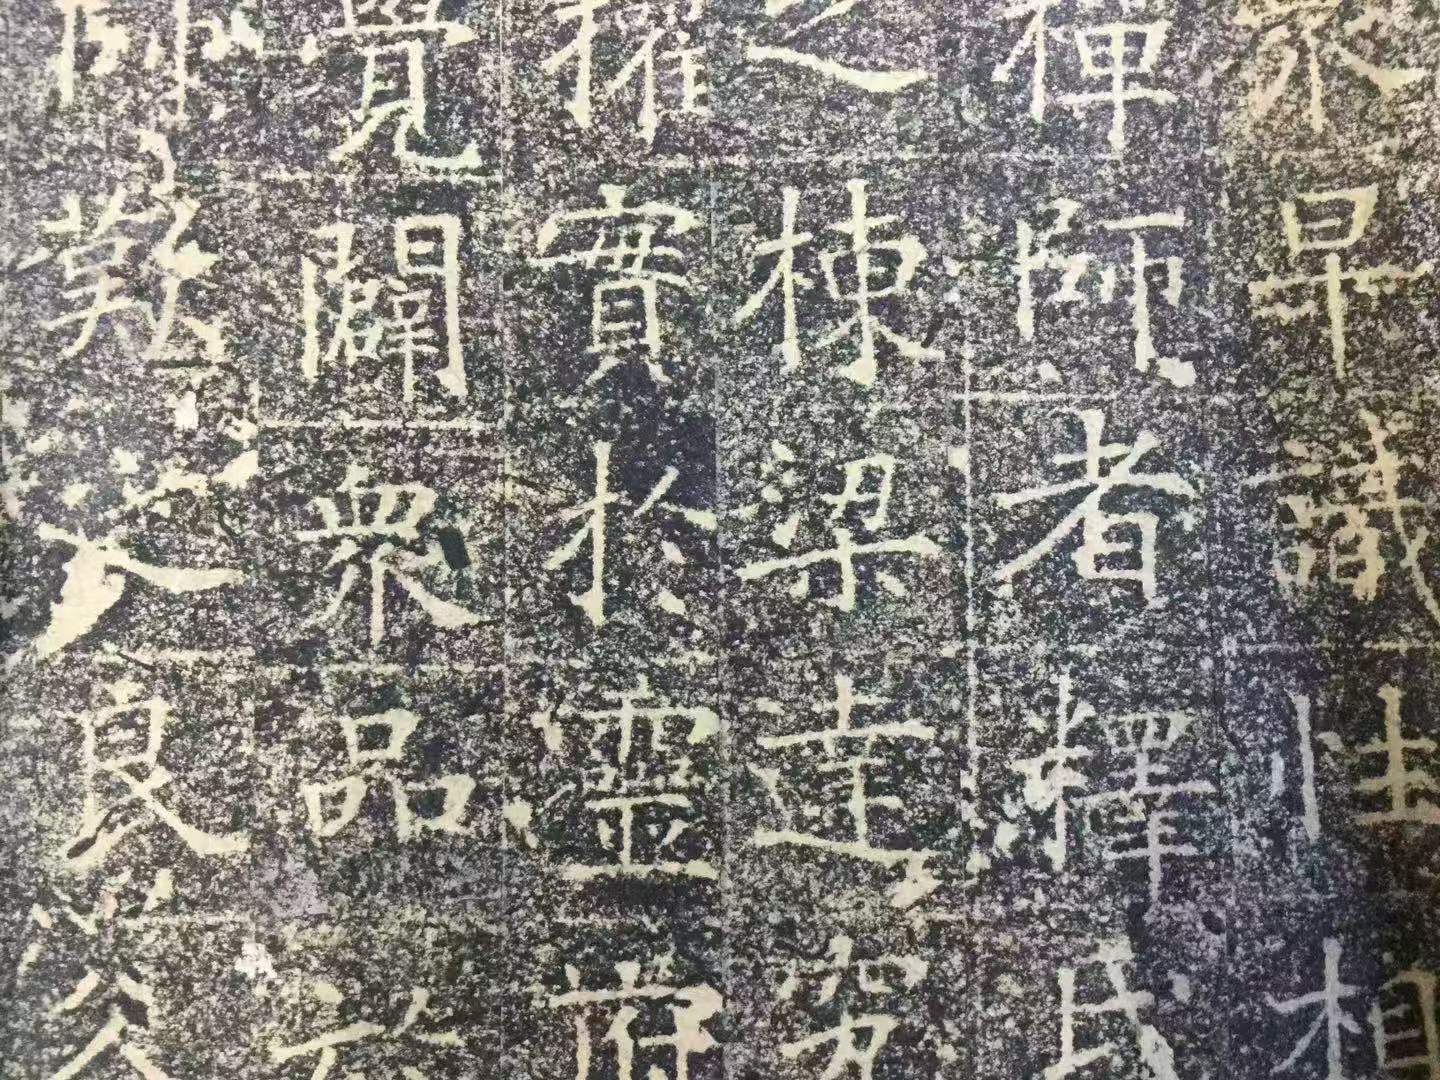 早識性相
禪師者釋氏
之棟梁達究
權實於靈府
覺闢衆品
師
良